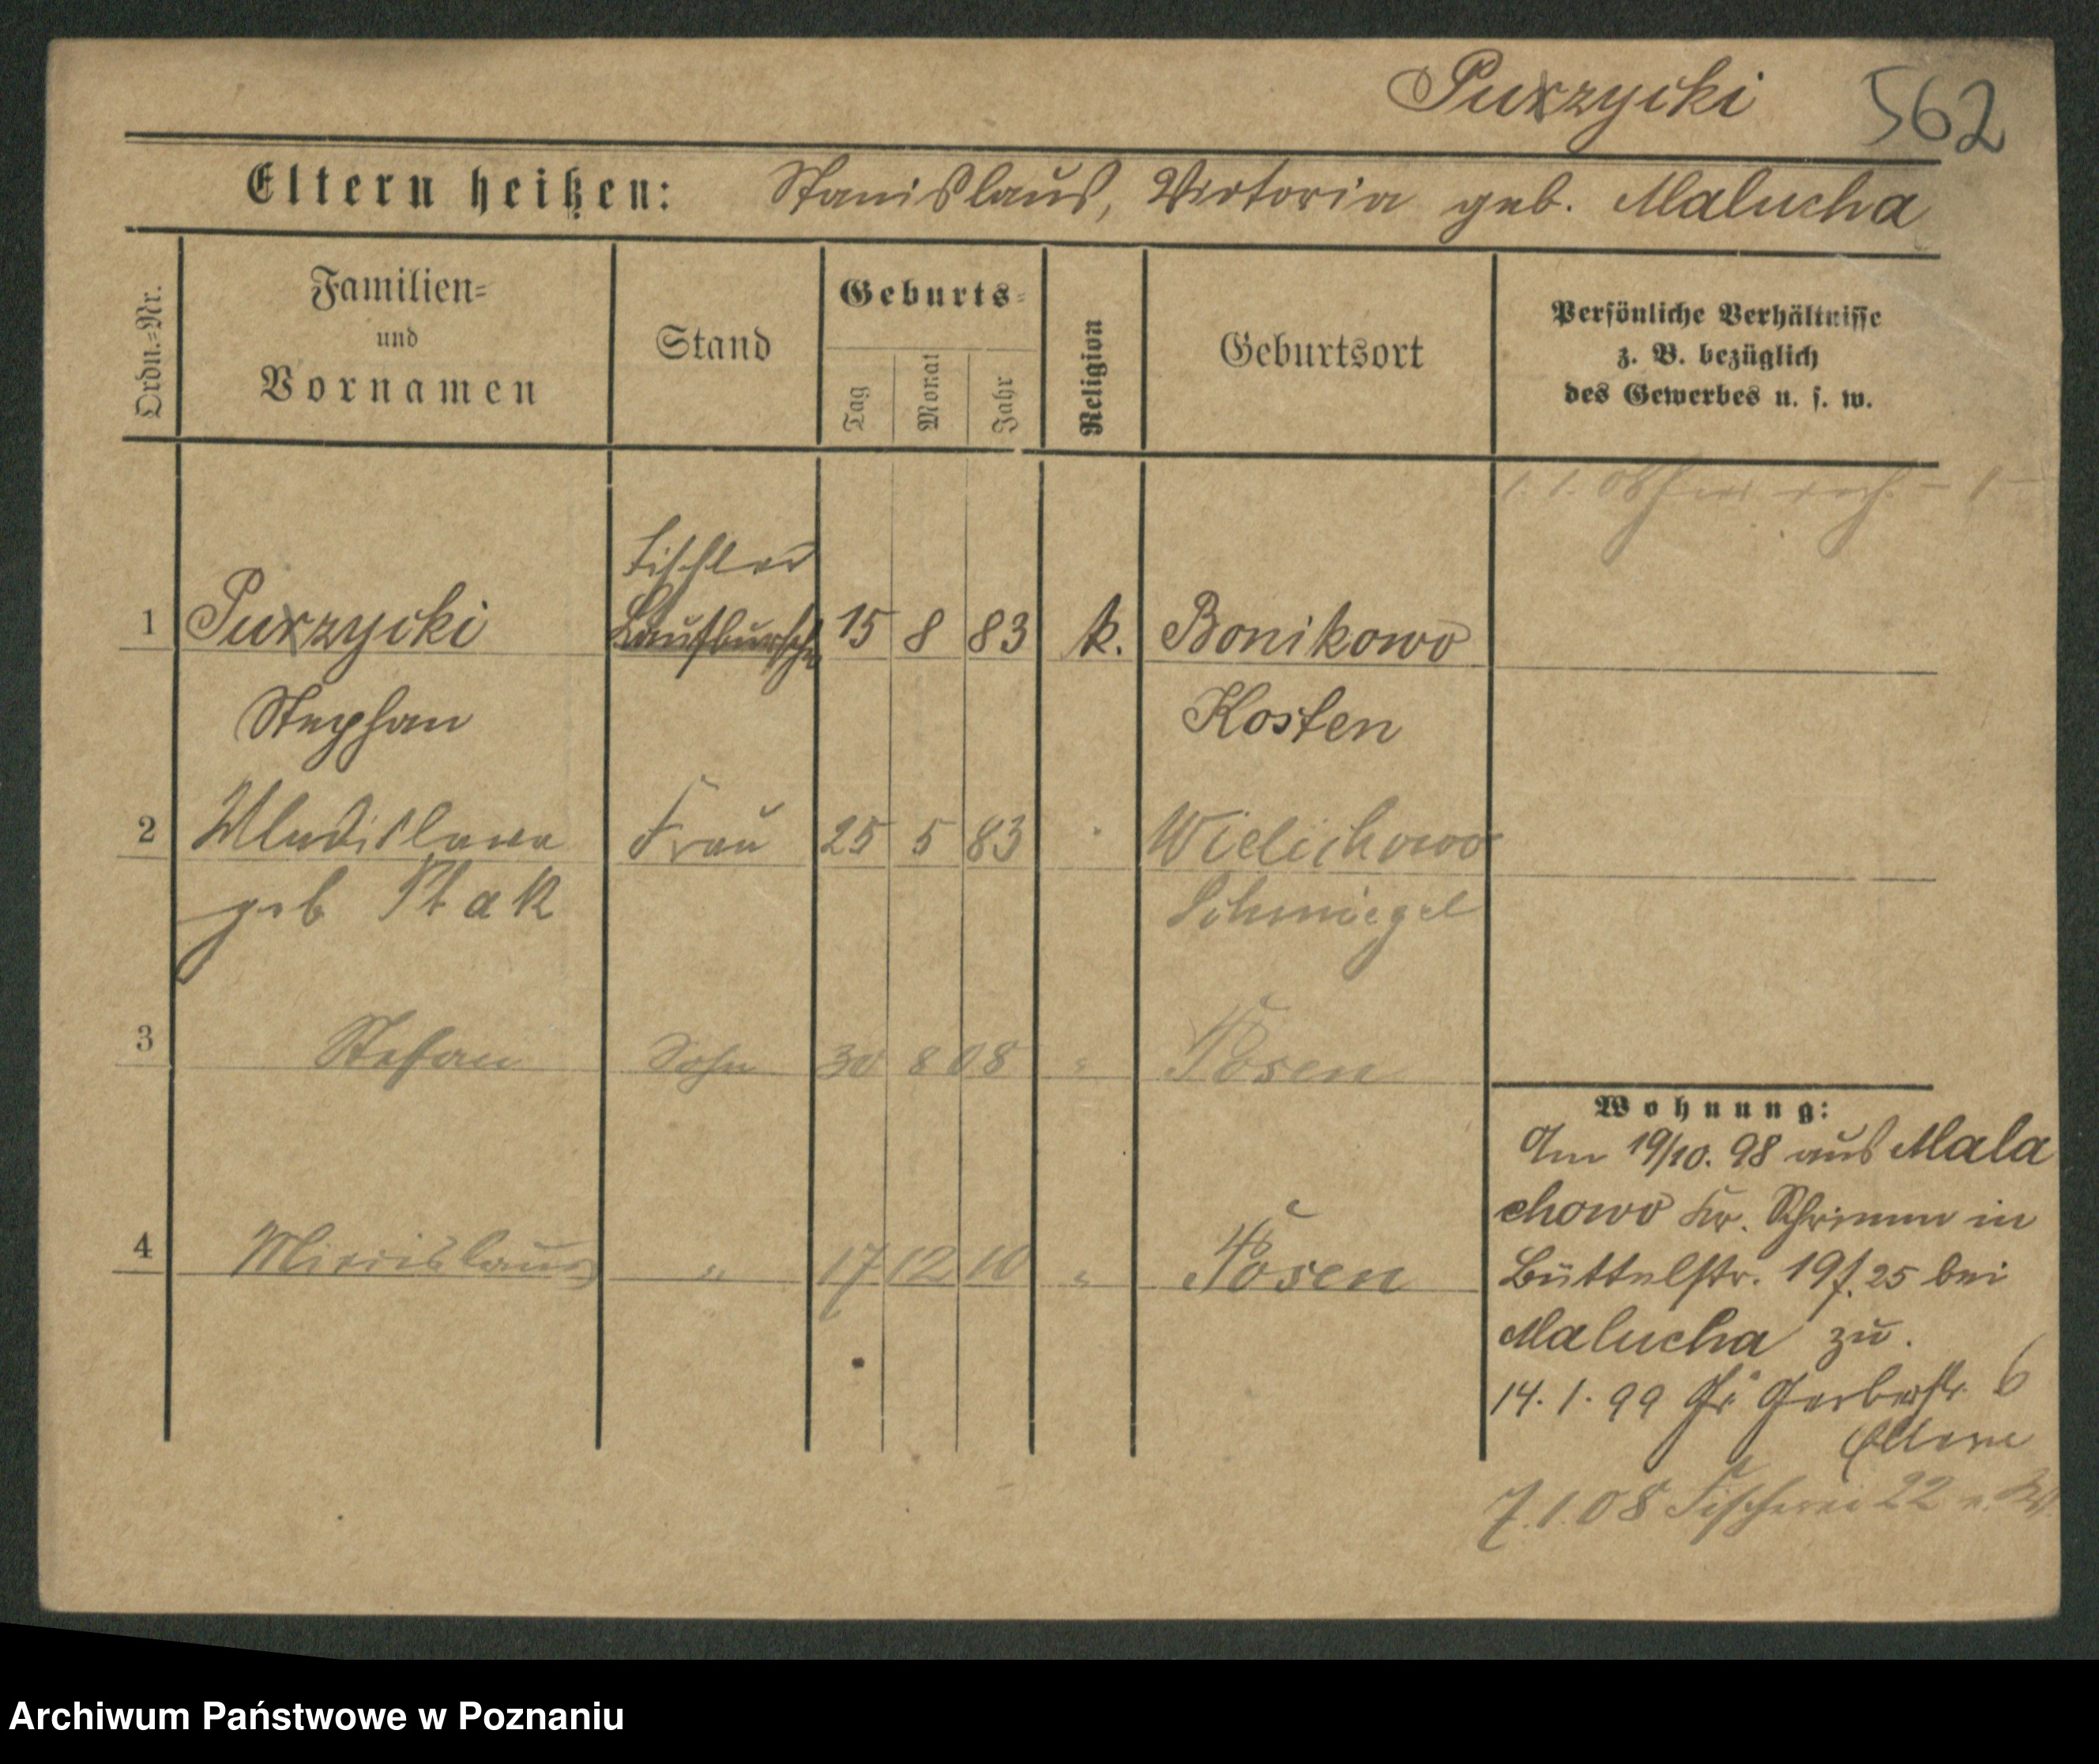 Purzycki 562
Eltern heißen: Stanislaus, Victoria geb. Malucha
Ordn.-Nr.
Familien-
und
Vornamen
Stand
Geburts-
Tag
Monat
Jahr
Religion
Geburtsort
Persönliche Verhältnisse
z. B. bezüglich
des Gewerbes u. s. w.
Tischler
1 Purzycki Laufbursche 15 8 83 k. Bonikowo
Stephan Kosten
2 Wladislawa Frau 25 5 83 " Wielichowo
geb Ptak Schmiegel
3 Stefan Sohn 30 8 08 " Posen
Wohnung:
Am 19/10. 98 aus Mala
chowo Kr. Schrimm in
4 Miecislaus " 17 12 10 " Posen
Büttelstr. 19 f. 25 bei
Malucha zu.
14. 1. 99 Gr Gerberstr. 6
7.1.08 Fischerei 22
Archiwum Państwowe w Poznaniu